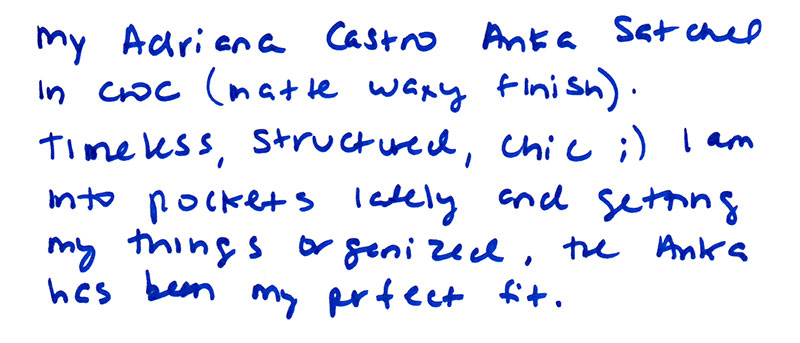 my Adriana Castro Anka Satchel
in croc (matte waxy finish).
Timeless, structured, chic ;) I am
into pockets lately and getting
my things organized, the Anka
has been my prfect fit.